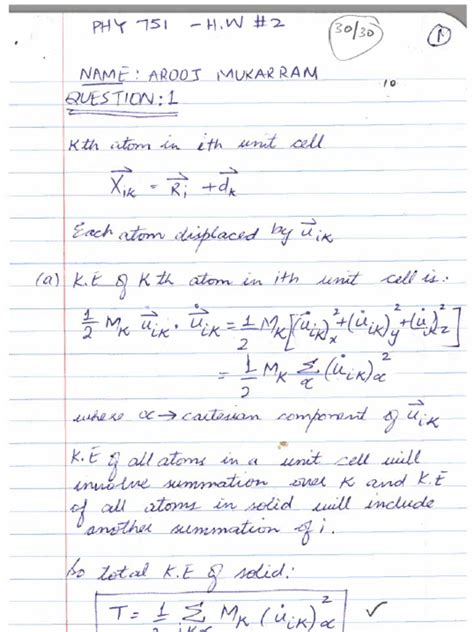 PHY 751 - H.W #2
30/30
1
NAME: AROOJ MUKARRAM
10
QUESTION:1
Kth atom in ith unit cell
X⃗ik = R⃗i + d⃗k
Each atom displaced by u⃗ik
(a) K.E of Kth atom in ith unit cell is:
1/2 MK u̇⃗ik · u̇⃗ik = 1/2 MK [(u̇ik)²x + (u̇ik)²y + (u̇ik)²z]
= 1/2 MK Σα (u̇ik)²α
where α → cartesian component of u⃗ik
K.E of all atoms in a unit cell will
involve summation over K and K.E
of all atoms in solid will include
another summation of i.
So total K.E of solid:
T = 1/2 Σikα MK (u̇ik)²α ✓